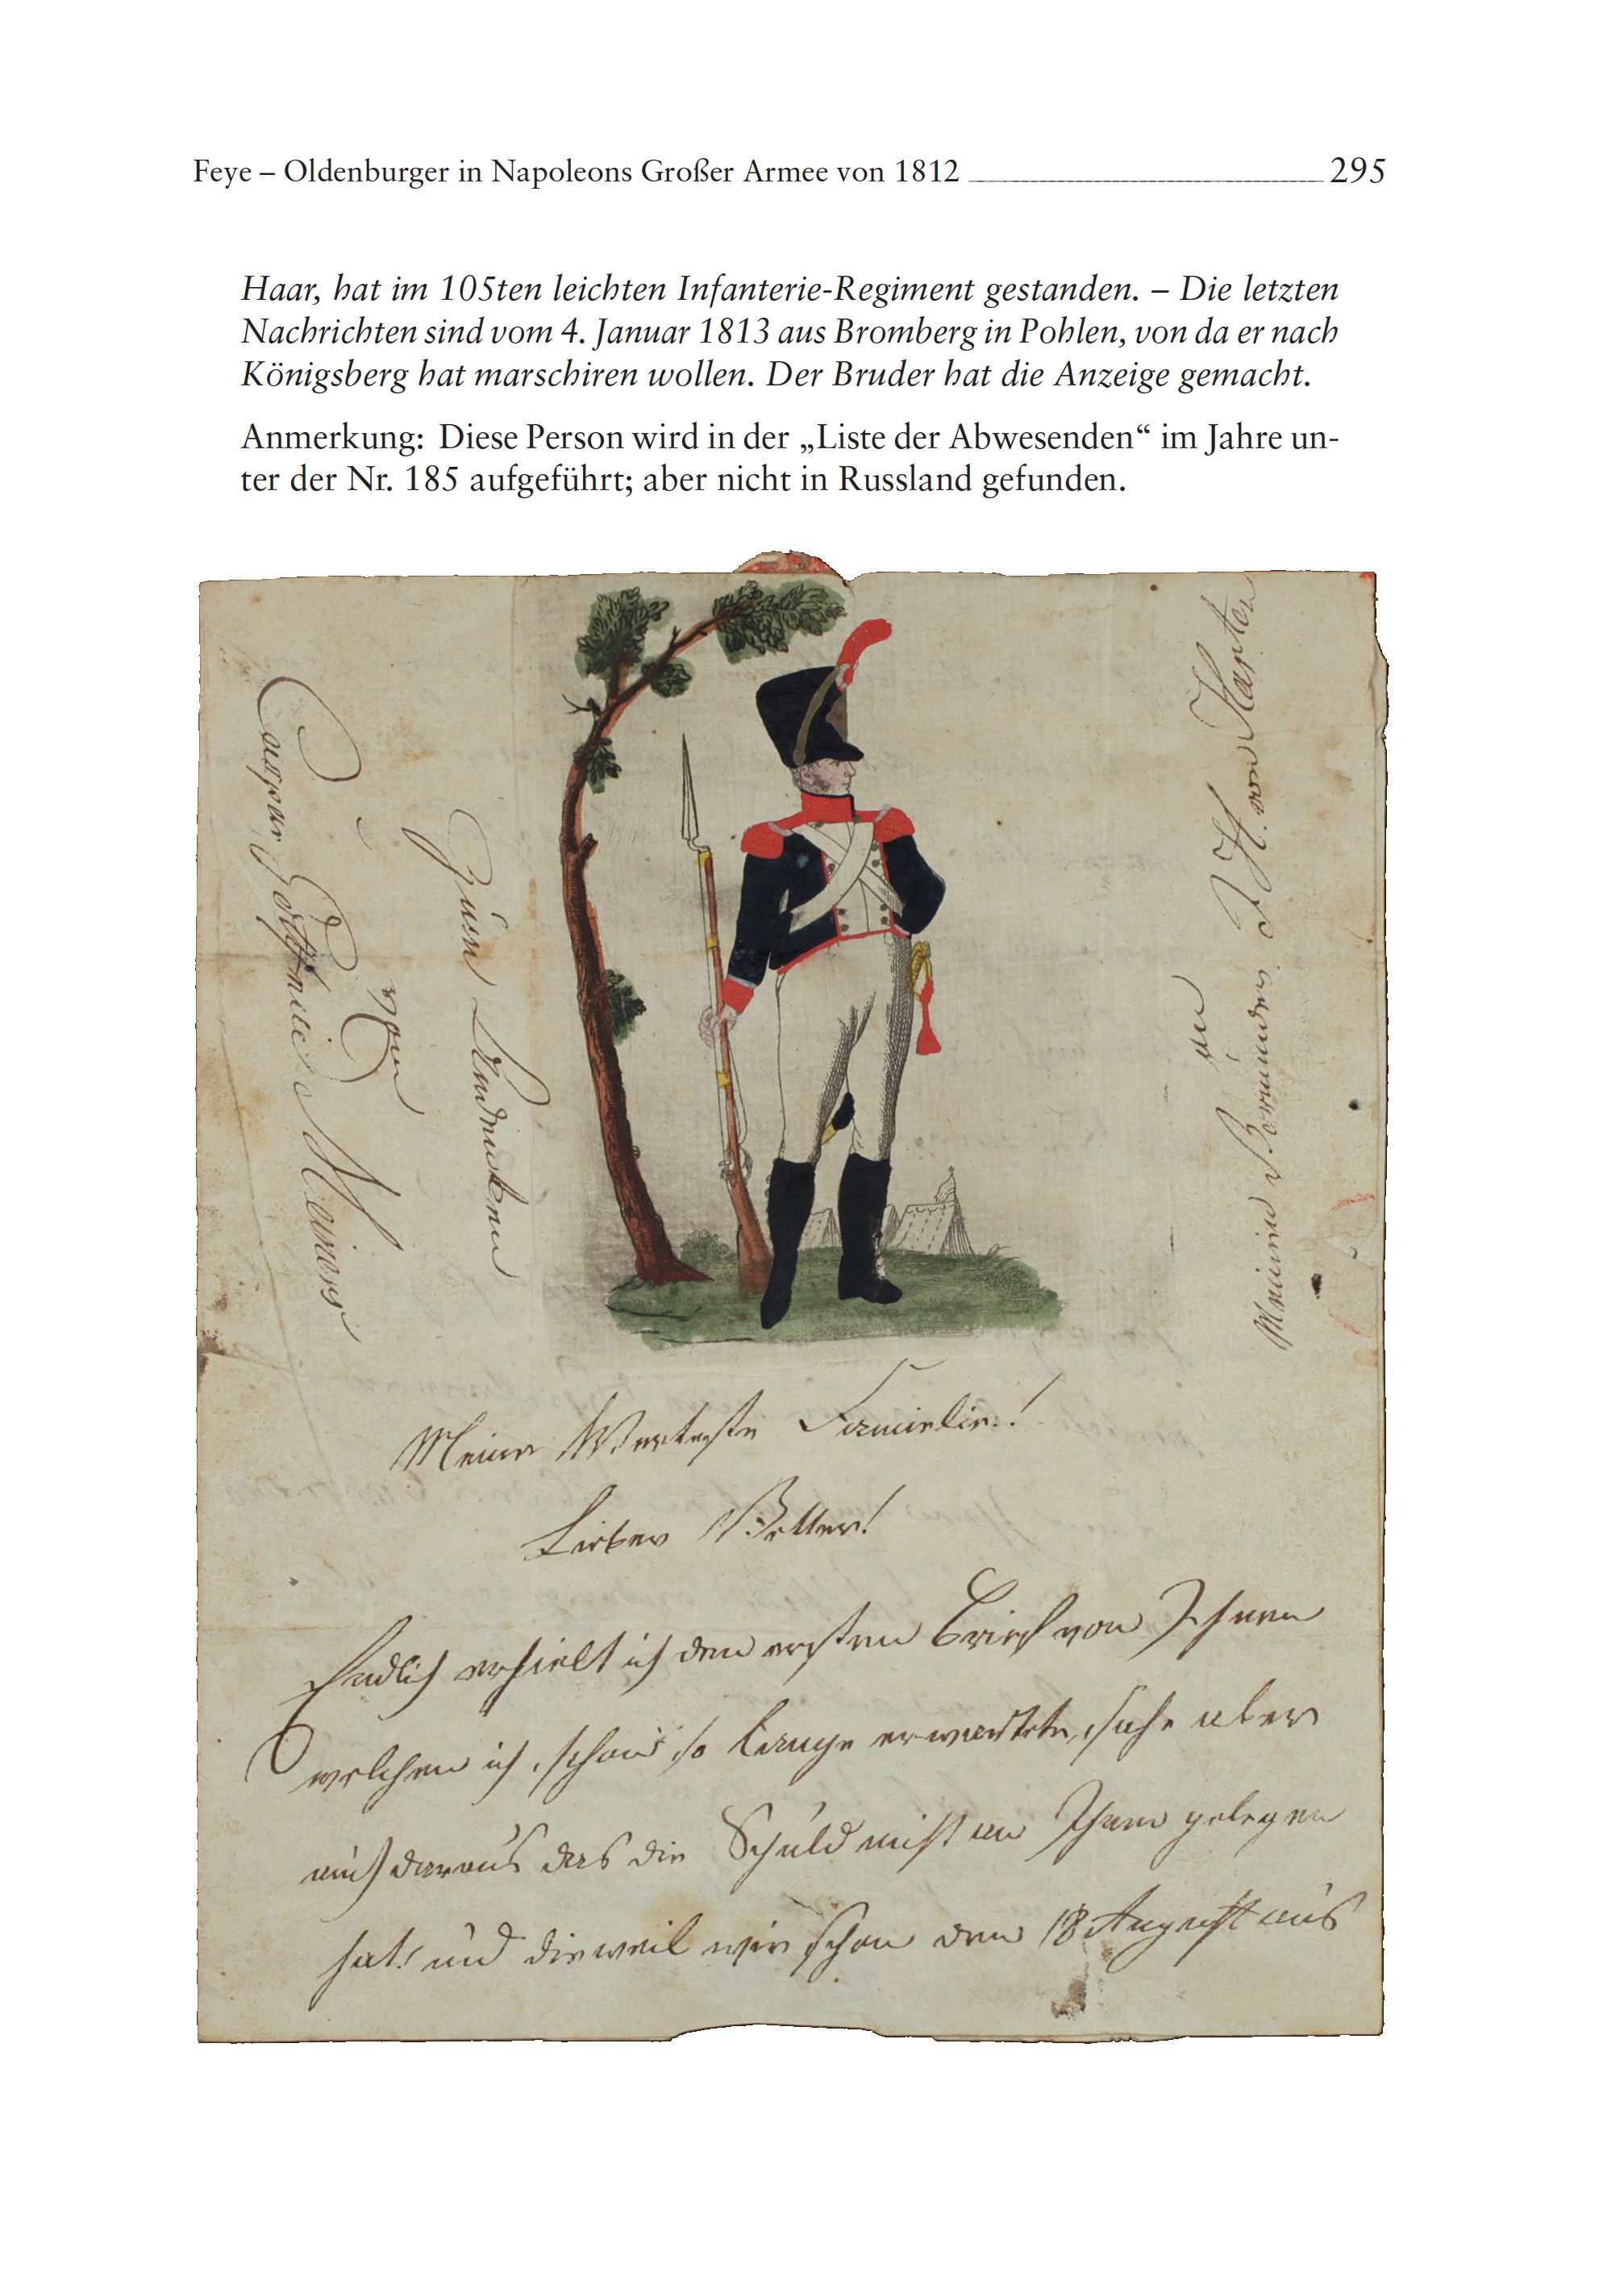 Feye – Oldenburger in Napoleons Großer Armee von 1812 295
Haar, hat im 105ten leichten Infanterie-Regiment gestanden. – Die letzten
Nachrichten sind vom 4. Januar 1813 aus Bromberg in Pohlen, von da er nach
Königsberg hat marschiren wollen. Der Bruder hat die Anzeige gemacht.
Anmerkung: Diese Person wird in der „Liste der Abwesenden“ im Jahre un-
ter der Nr. 185 aufgeführt; aber nicht in Russland gefunden.
Zum Andencken
von
Meiners
an
Meinen Vormünder J. H. von Harten
Meine Werteste Famielie!
Lieber Vetter!
Endlich erhielt ich den ersten Brief von Ihnen
welchen ich schon so lange erwartete, sahe aber
auch daraus das die Schuld nicht an Ihnen gelegen
hat! und dieweil wir schon den 18 Augusst aus